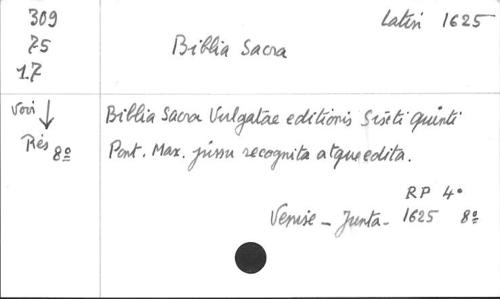 309
75
17
Latin 1625
Biblia Sacra
Voir ↓
Rés 8º
Biblia Sacra Vulgatae editionis Sixti Quinti
Pont. Max. jussu recognita atque edita.
RP 4º
Venise - Junta - 1625 8º